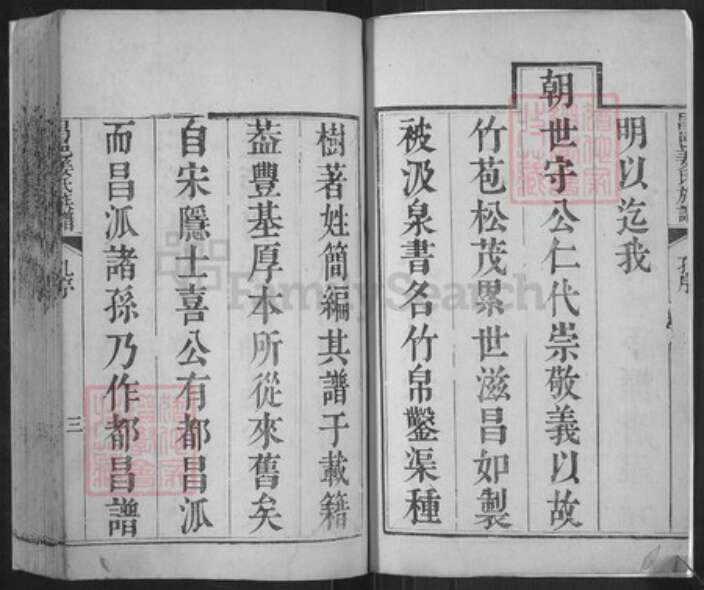 明以迄我
朝世守公仁代崇敬義以故
竹苞松茂累世滋昌如製
被汲泉書名竹帛鑿渠種
樹著姓簡編其譜于載籍
葢豐基厚本所從來舊矣
自宋隱士喜公有都昌派
而昌派諸孫乃作都昌譜
氏族譜
孔序
三
FamilySearch